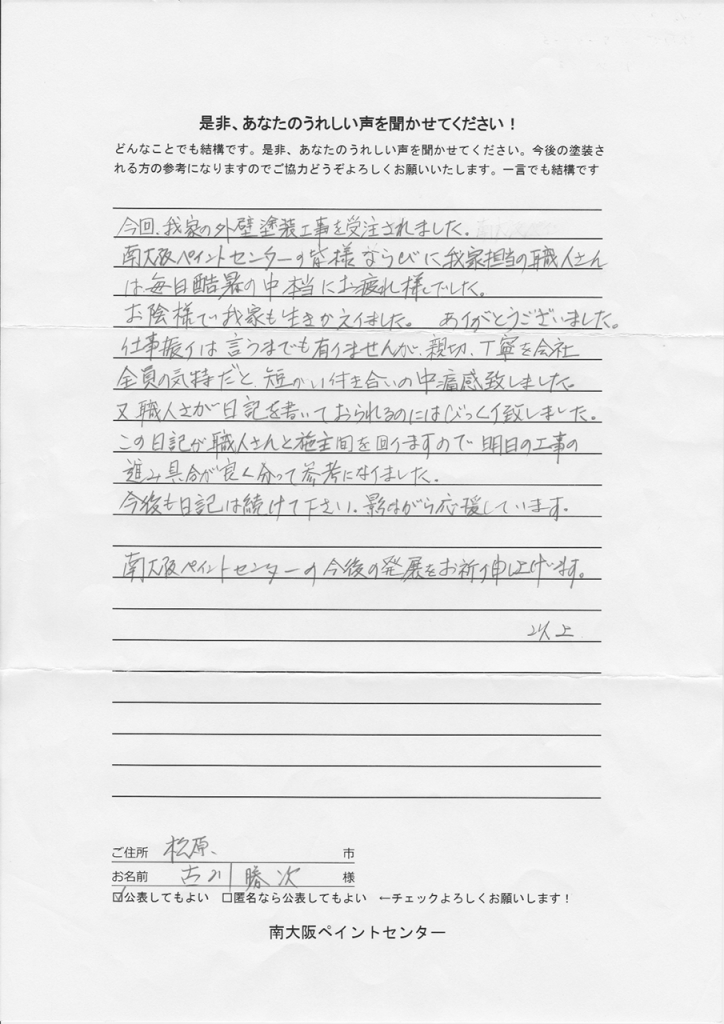 是非、あなたのうれしい声を聞かせてください！
どんなことでも結構です。是非、あなたのうれしい声を聞かせてください。今後の塗装さ
れる方の参考になりますのでご協力どうぞよろしくお願いいたします。一言でも結構です
今回、我家の外壁塗装工事を受注されました。
南大阪ペイントセンターの皆様ならびに我家担当の職人さん
は毎日酷暑の中本当にお疲れ様でした。
お陰様で我家も生きかえりました。 ありがとうございました。
仕事振りは言うまでも有りませんが、親切、丁寧を会社
全員の気持だと、短かい付き合いの中痛感致しました。
又職人さが日記を書いておられるのにはびっくり致しました。
この日記が職人さんと施主間を回りますので明日の工事の
進み具合が良く分って参考になりました。
今後も日記は続けて下さい。影ながら応援しています。
南大阪ペイントセンターの今後の発展をお祈り申し上げます。
以上
ご住所 松原、 市
お名前 古川 勝次 様
☑公表してもよい □匿名なら公表してもよい ←チェックよろしくお願いします！
南大阪ペイントセンター